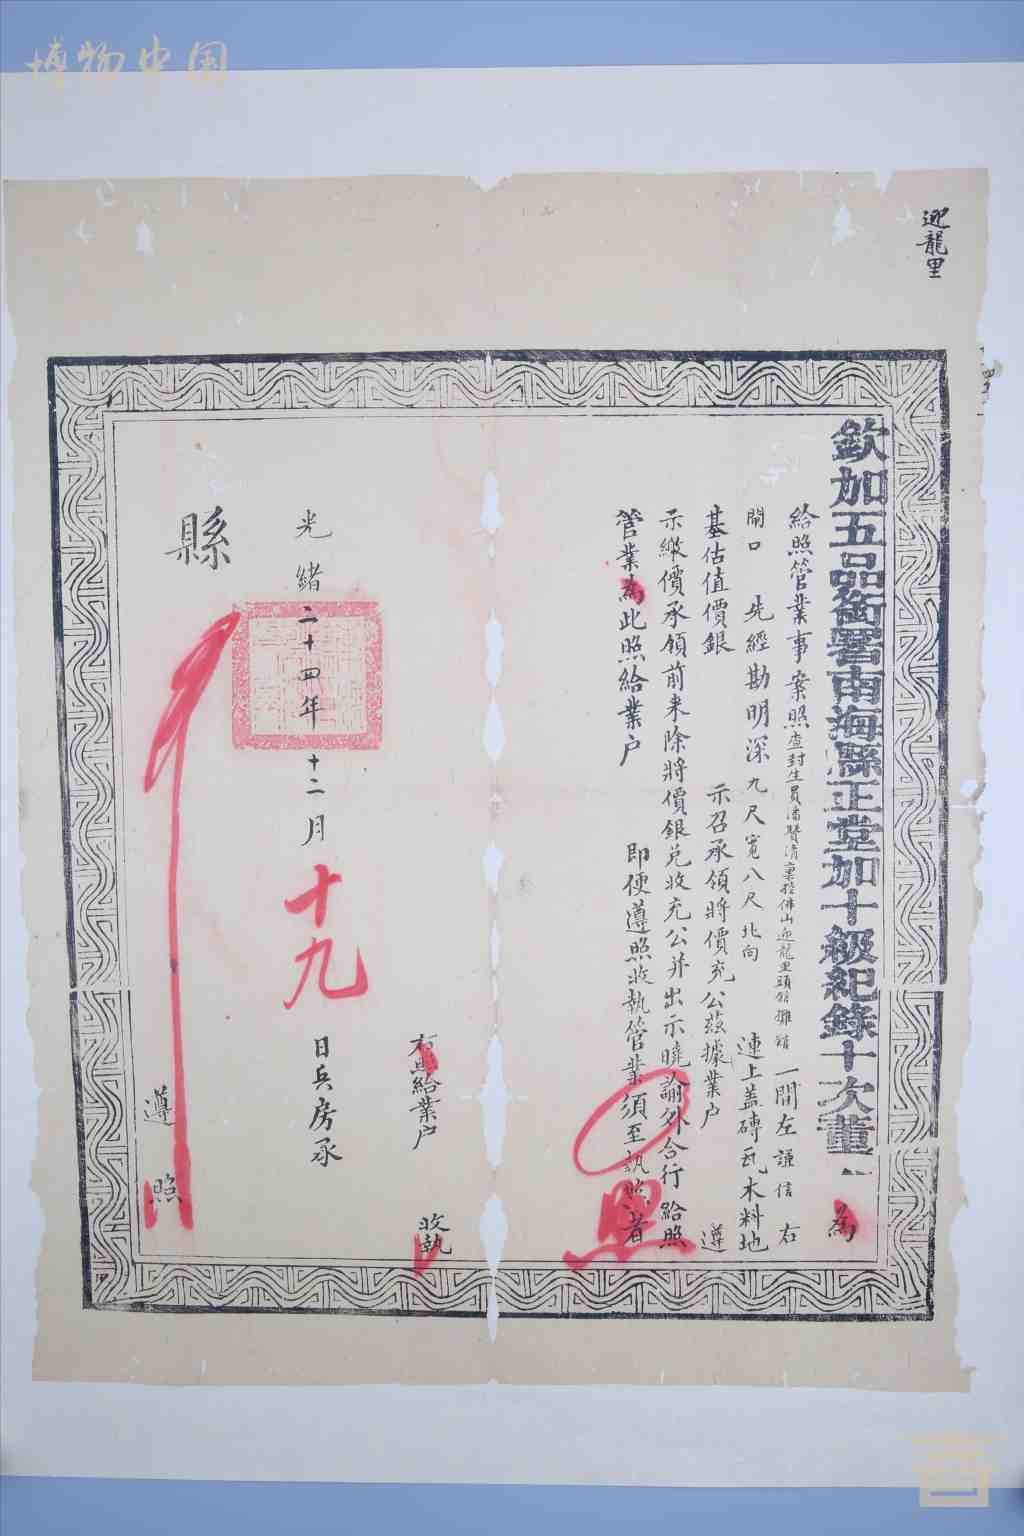 博物中国
迎龍里
欽加五品銜署南海縣正堂加十級紀錄十次董 為
給照管業事案照查封生員潘贊清稟控佛山迎龍里頭 攤館 一間左謙信 右
閘口 先經勘明深九尺寬八尺北向 連上盖磚瓦木料地
基估值價銀 示召承領將價充公茲據業户 遵
示繳價承領前来除將價銀兑收充公并出示曉諭外合行給照
管業為此照給業户 即便遵照收執管業須至執照者
照
右照給業户 收執
光緒二十四年十二月十九日兵房承
縣
遵照